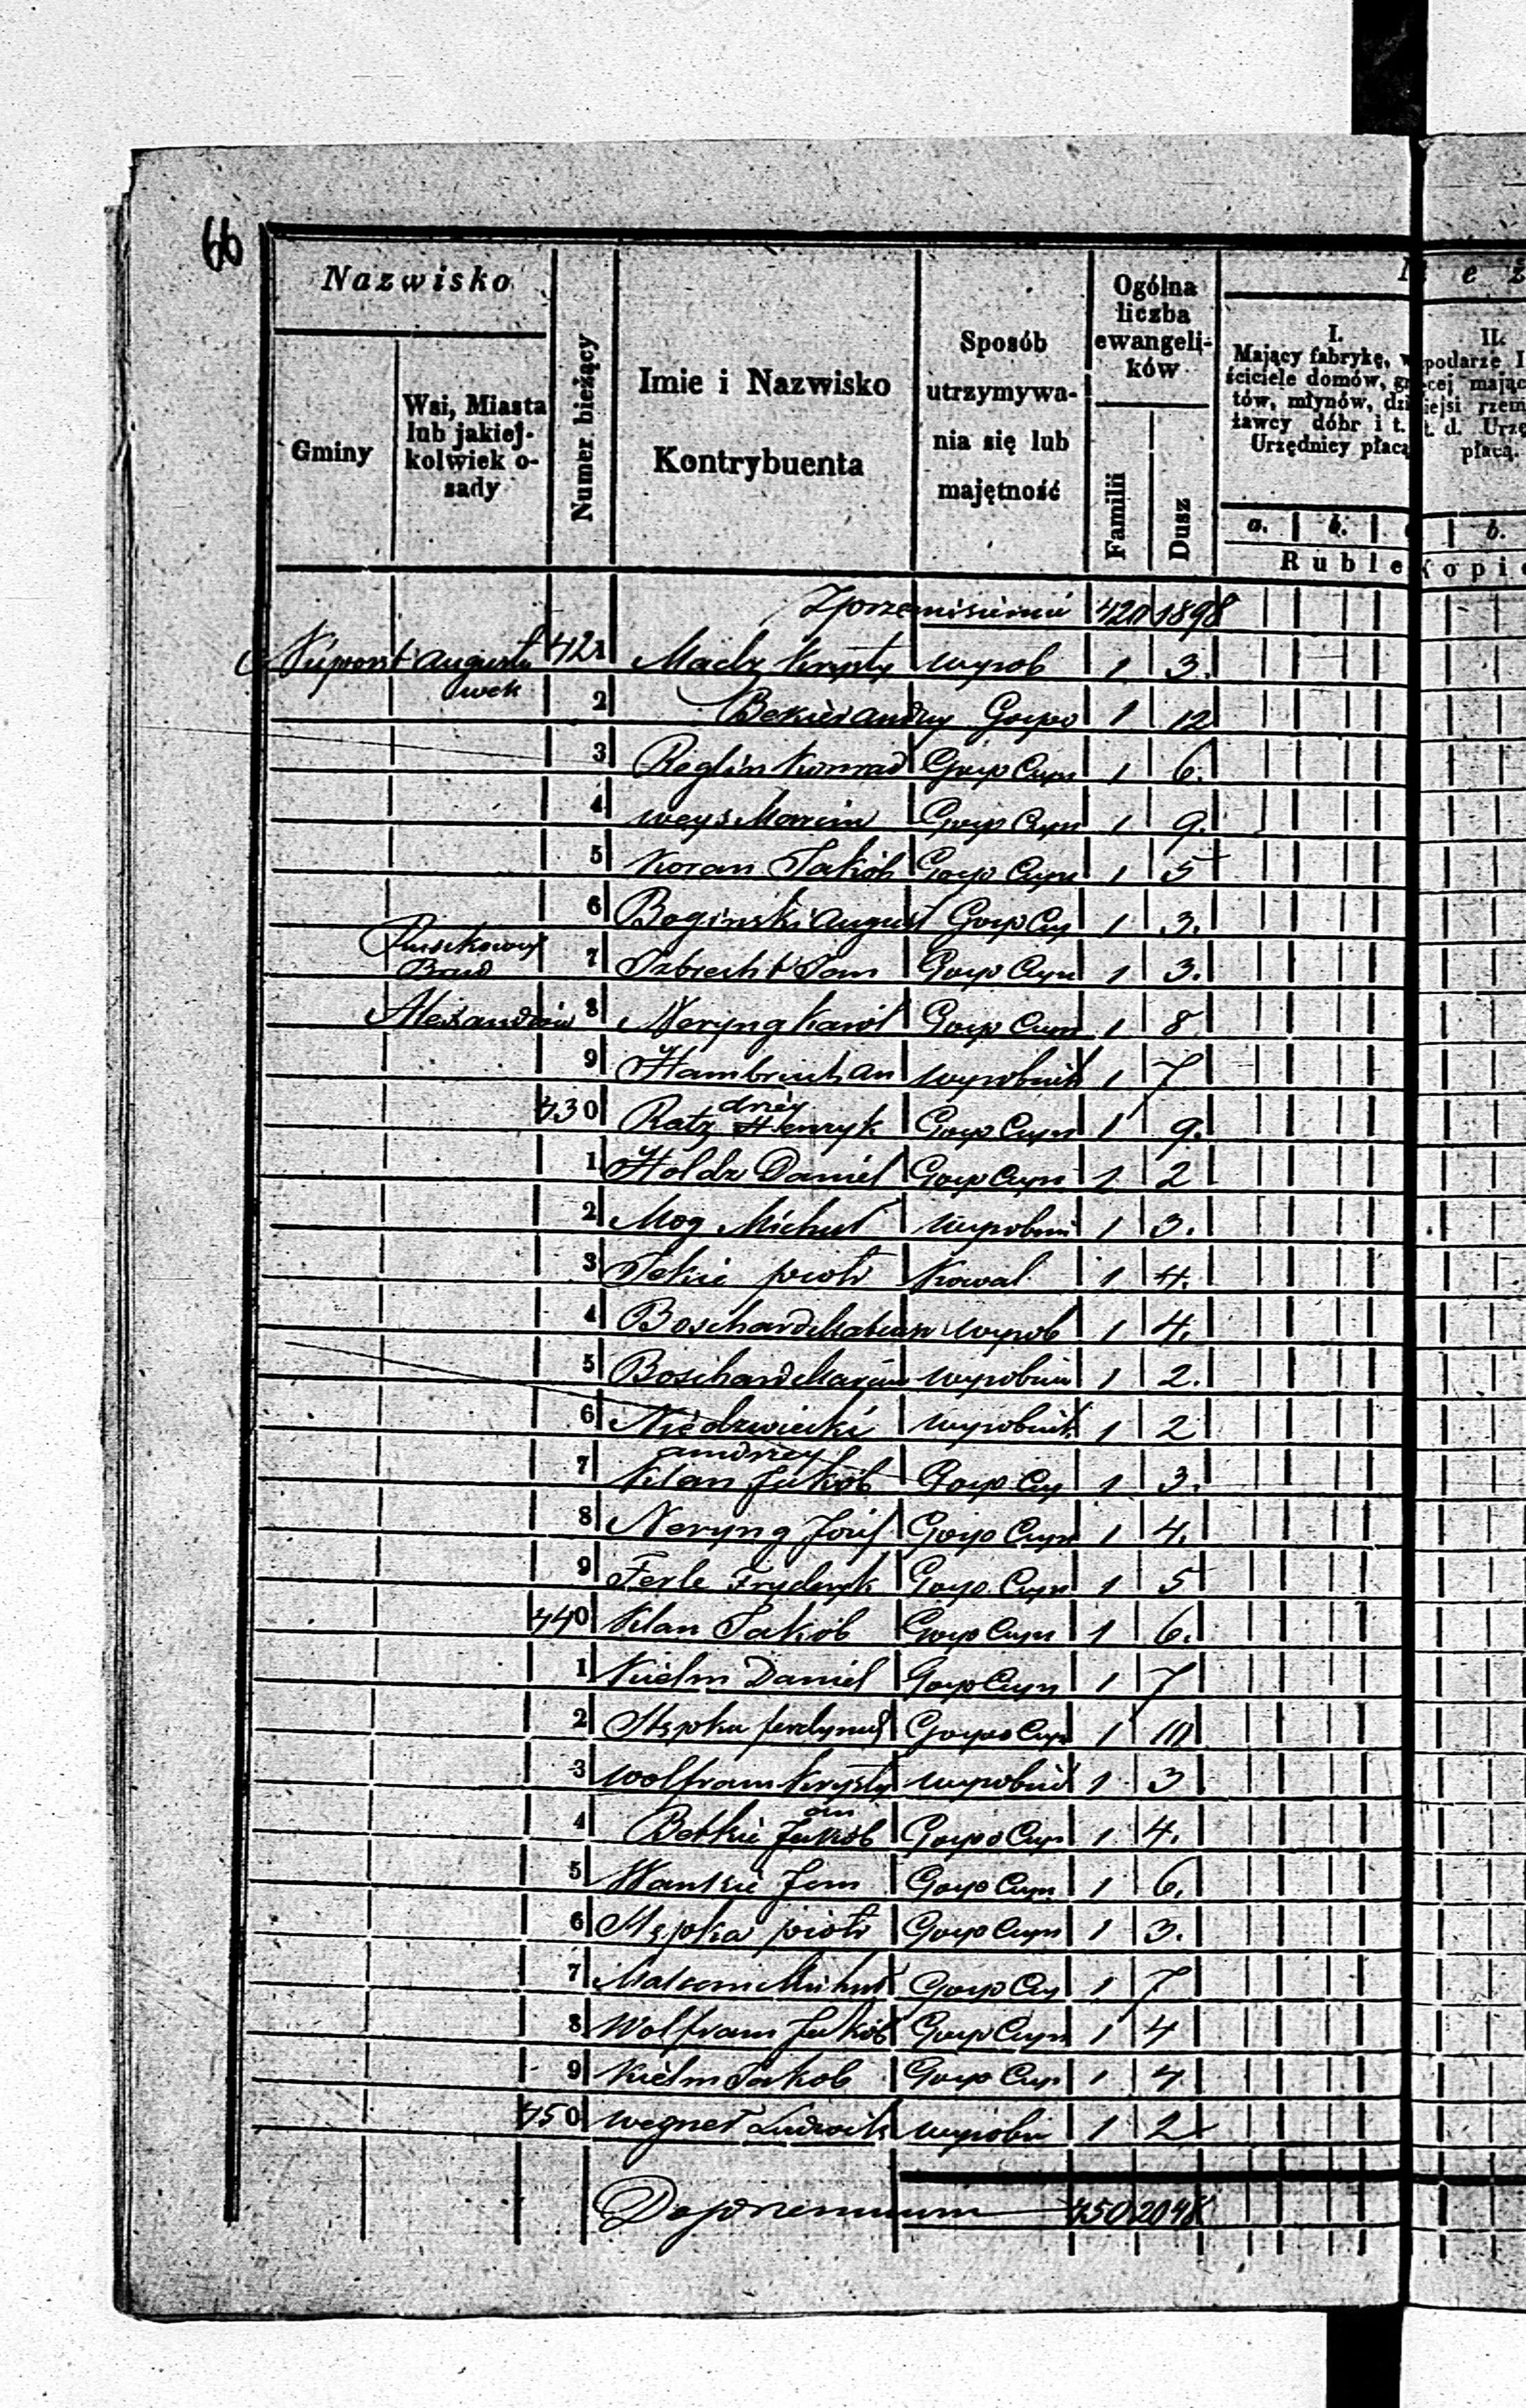 66
Nazwisko
Gminy
Wsi, Miasta
lub jakiej-
kolwiek o-
sady
Numer bieżący
Imie i Nazwisko
Kontrybuenta
Sposób
utrzymywa-
nia się lub
majętność
Ogólna
liczba
ewangeli-
ków
Familii
Dusz
I.
Mający fabrykę, w
ściciele domów, gr
tów, młynów, dzi
żawcy dóbr i t.
Urzędnicy płacą
a. b.
Ruble
e ż
II.
podarze I
cej mając
iejsi rzem
t. d. Urzę
płacą.
b.
Kopie
Z przeniesienia 420 1898
Augusto 421 Mady Krysty wyrob 1 3.
wek
2 Bekier Andrzy Gospo 1 12
3 Reglin Konrad Gosp Czyn 1 6.
4 Weys Marcin Gosp Czyn 1 9.
5 Koran Jakób Gosp Czyn 1 5
6 Boginski August Gosp Czy 1 3.
Brud 7 Gosp Czyn 1 3.
Alexandrów 8 Neryng Karol Gosp Czyn 1 8.
9 An wyrobnik 1 7
drzey
430 Ratz Henryk Gosp Czyn 1 9.
1 Holdz Daniel Gosp Czyn 1 2
2 Mog Michał wyrobni 1 3.
3 Jekie piotr Kowal 1 4.
4 Boschard wyrob 1 4.
5 Boschard Marcin wyrobni 1 2.
6 Niedzwiecki wyrobnik 1 2
andrzey
7 Klan Jakób Gosp Czy 1 3.
8 Neryng Józef Gosp Czyn 1 4.
9 Ferle Fryderyk Gosp Czyn 1 5
440 Klan Jakób Gosp Czyn 1 6.
1 Kielm Daniel Gosp Czyn 1 7
2 ferdynad Gospo Czyn 1 10
3 Wolfram Krysty wyrobnik 1 3
an
4 Betkie Jakób Gospo Czyn 1 4.
5 Jan Gosp Czyn 1 6.
6 piotr Gosp Czyn 1 3.
7 Michał Gosp Czy 1 7
8 Wolfram Jakób Gosp Czyn 1 4
9 Kielm Jakob Gosp Czyn 1 4
450 Wegner Ludwik wyrobn 1 2
450 2048